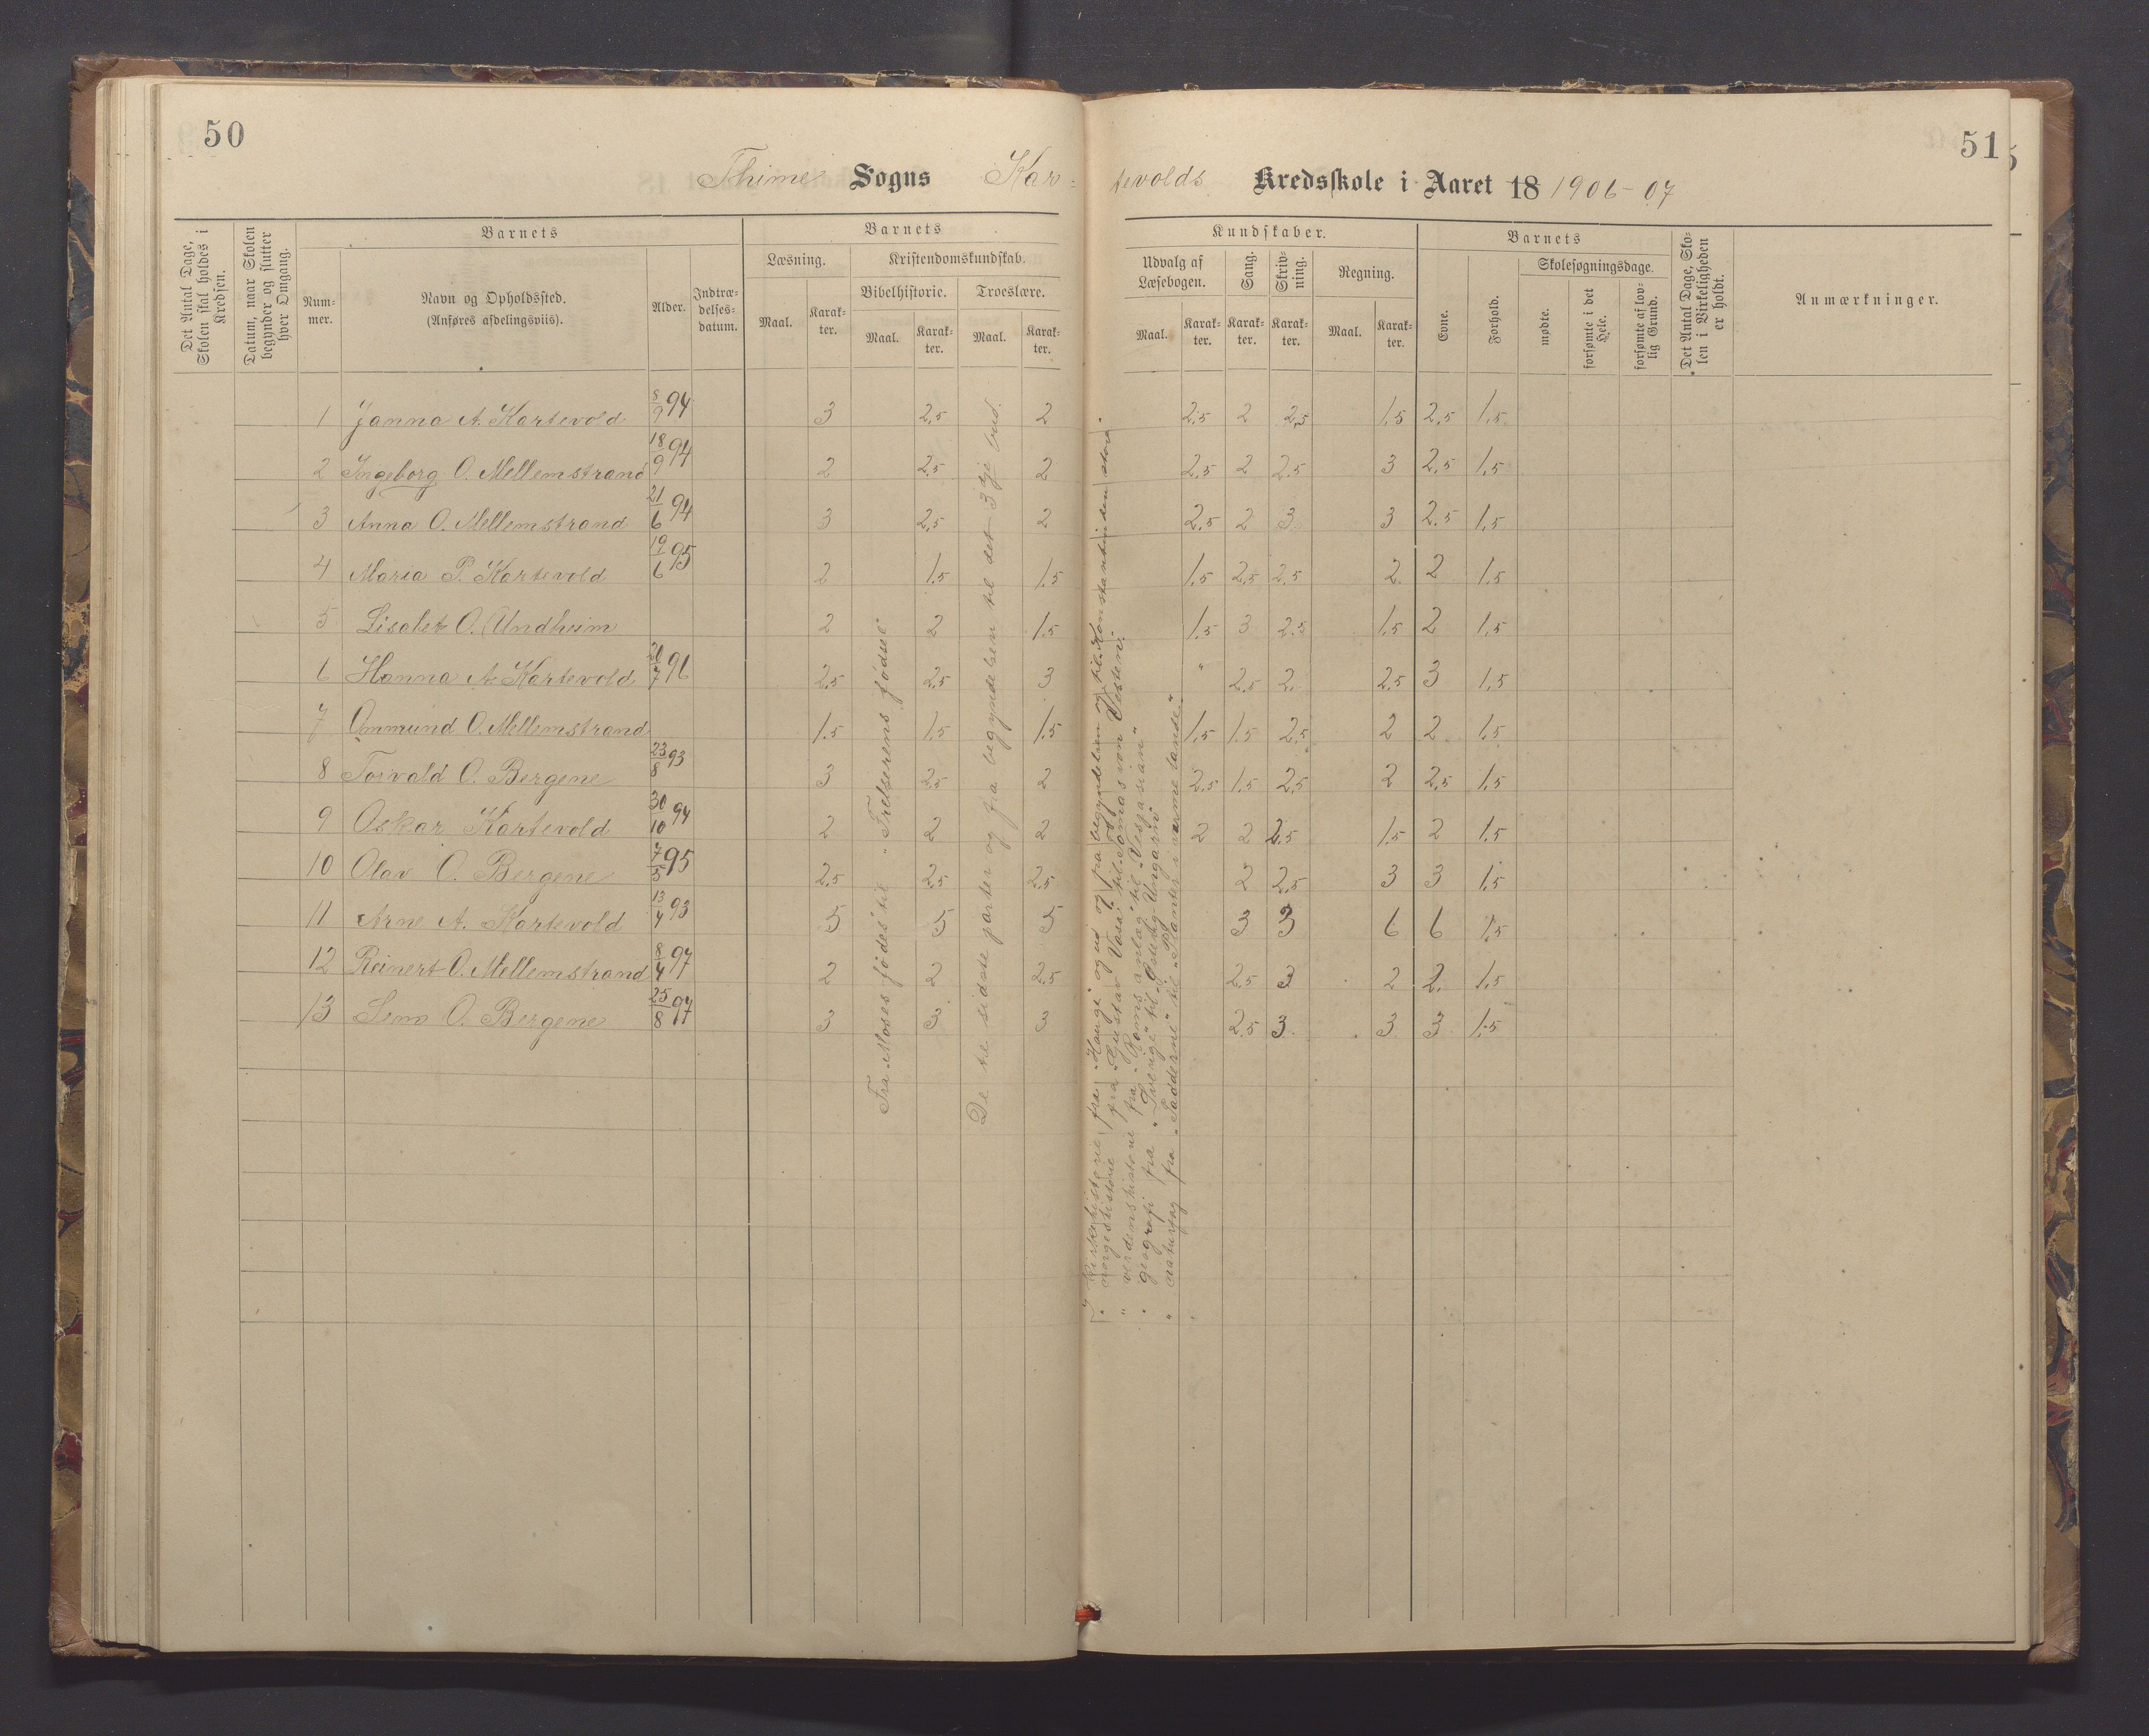 50
51
Thime Sogns Kar-
tevolds Kredsskole i Aaret 18 1906-07
Det Antal Dage, Skolen skal holdes i Kredsen.
Datum, naar Skolen begynder og slutter hver Omgang.
Barnets
Num-
mer.
Navn og Opholdssted.
(Anføres afdelingsviis).
Alder.
Indtræ-
delses-
datum.
Barnets
Læsning.
Maal.
Karak-
ter.
Kristendomskundskab.
Bibelhistorie.
Maal.
Karak-
ter.
Troeslære.
Maal.
Karak-
ter.
Kundskaber.
Udvalg af
Læsebogen.
Maal.
Karak-
ter.
Sang.
Karak-
ter.
Skriv-
ning.
Karak-
ter.
Regning.
Maal.
Karak-
ter.
Barnets
Evne.
Forhold.
Skolesøgningsdage.
mødte.
forsømte i det
Hele.
forsømte af lov-
lig Grund.
Det Antal Dage, Sko-
len i Virkeligheden
er holdt.
Anmærkninger.
1 Janna A. Kartevold 8/9 94 3 2,5 2 2,5 2 2,5 1,5 2,5 1,5
2 Ingeborg O. Mellemstrand 18/9 94 2 2,5 2 2,5 2 2,5 3 2,5 1,5
3 Anna O. Mellemstrand 21/6 94 3 2,5 2 2,5 2 3 3 2,5 1,5
4 Maria P. Kartevold 19/6 95 2 1,5 1,5 1,5 2,5 2,5 2 2 1,5
5 Lisabet O. Undheim 2 2 1,5 1,5 3 2,5 1,5 2 1,5
6 Hanna A. Kartevold 96 2,5 2,5 3 " 2,5 2 2,5 3 1,5
7 Ommund O. Mellemstrand 1,5 1,5 1,5 1,5 1,5 2,5 2 2 1,5
8 Torvald O. Bergene 23/8 93 3 2,5 2 2,5 1,5 2,5 2 2,5 1,5
9 Oskar Kartevold 30/10 94 2 2 2 2 2 2,5 1,5 2 1,5
10 Olav O. Bergene 7/5 95 2,5 2,5 2,5 2 2,5 3 3 1,5
11 Arne A. Kartevold 13/4 93 5 5 5 3 3 6 6 1,5
12 Reinert O. Mellemstrand 8/4 97 2 2 2,5 2,5 3 2 2 1,5
13 Sem O. Bergene 25/8 97 3 3 3 2,5 3 3 3 1,5
Fra "Moses fødes" til "Frelserens fødsel"
De tre sidste parter og fra begyndelsen til det 3dje bud.
I Kirkehistorie fra "Hauge" og ud og fra begyndelsen og til "Konstantin den store"
" norgeshistorie fra "Gustav Vasa" til "Tomas von Vesten"
" verdenshistorie fra "Roms anlæg" til "Vespasian"
" geografi fra "Sverige" til "Østerig-Ungarn"
" naturfag fra "Pattedyrene" til "Planter i varme lande"